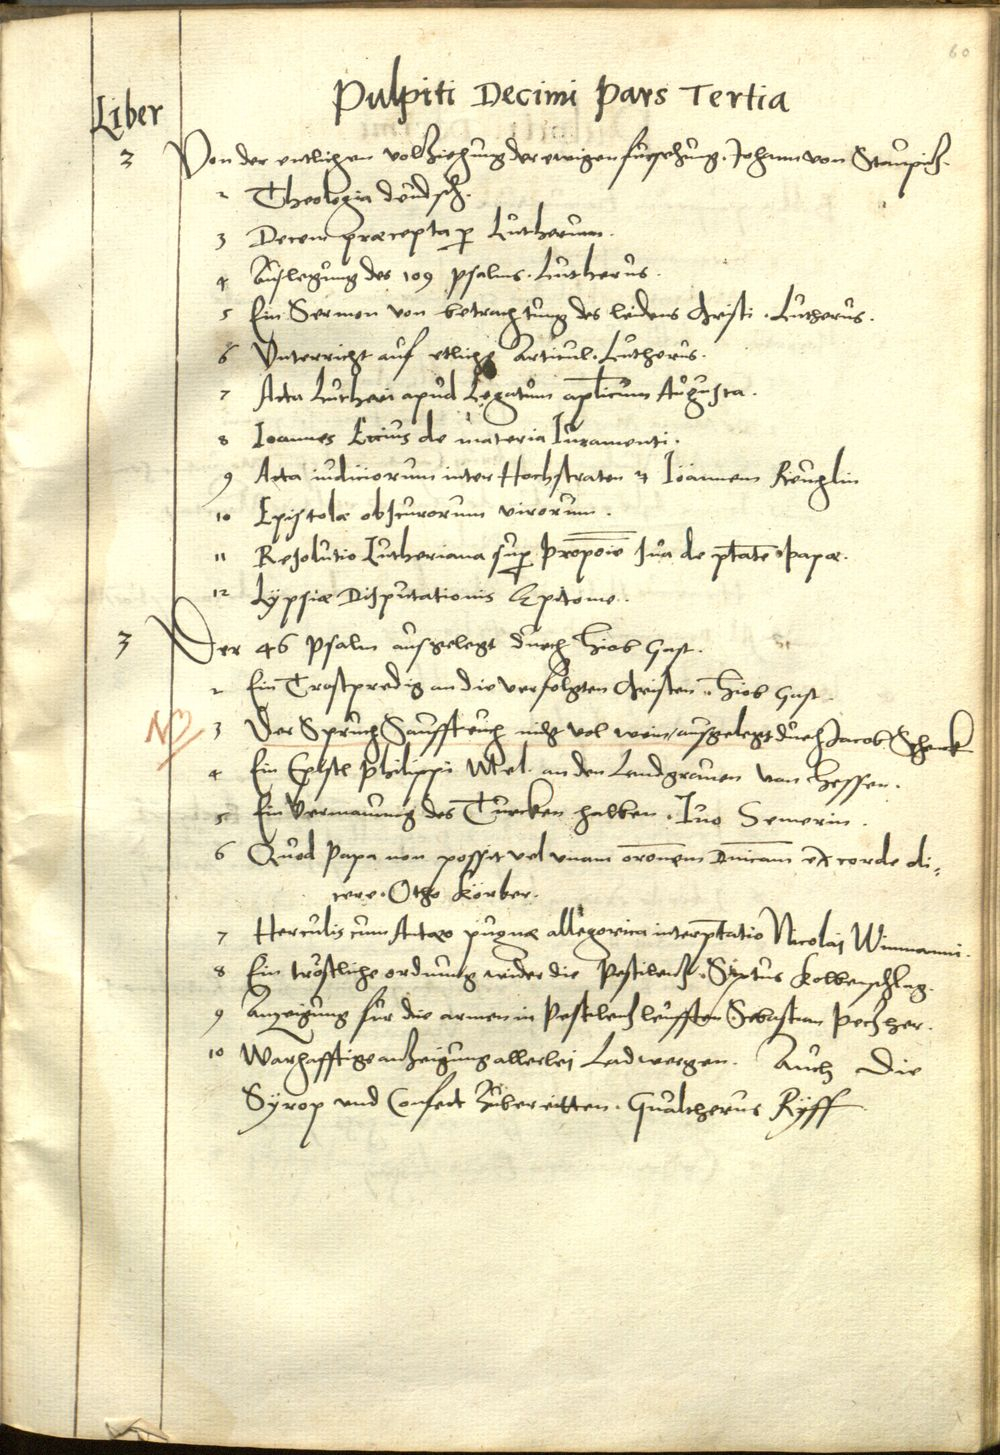 60
Pulpiti Decimi Pars Tertia
Liber
3 Von der entlichen volziehung der ewigen fursehung. Johann von Staupitz.
2 Theologia deudsch.
3 Decem præcepta p Lutherum.
4 Auslegung des 109 psalms. Lutherus.
5 Ein Sermon von betrachtung des leidens Christi. Lutherus.
6 Vnterricht auf etliche Articul. Lutherus.
7 Acta Lutheri apud Legatum aplicum Augusta.
8 Ioannes Eccius de materia Iuramenti.
9 Acta iudiciorum inter Hochstraten & Ioannem Reuchlin
10 Epistolæ obscurorum virorum.
11 Resolutio Lutheriana sup Propoie sua de ptate Papæ.
12 Lypsiæ Disputationis Epitome.
3 Der 46 Psalm ausgelegt durch Hiob Gast.
2 Ein Trostpredig an die verfolgten Christen. Hiob Gast.
NB 3 Der Spruch Saufft euch nicht vol wein/ausgelegt durch Jacob Schenk
4 Ein Epistel Philippi Mel. an den Landgrauen von Hessen.
5 Ein Vermanung des Turcken halben. Iuo Semerin.
6 Quod Papa non possit vel vnam oronem Dnicam ex corde di-
cere. Otho Körber.
7 Herculis cum Antæo pugnæ allegorica interptatio Nicolai Winmanni.
8 Ein tröstliche ordnung wider die Pestilentz. Sixtus Kolbenschlag.
9 Anzeigung für die armen in Pestilentz leufften. Sebastian Pechher.
10 Warhafftige anzeigung allerlei Ladwergen. Auch die
Syrop vnd Confect Zubereitten. Gualtherus Ryff